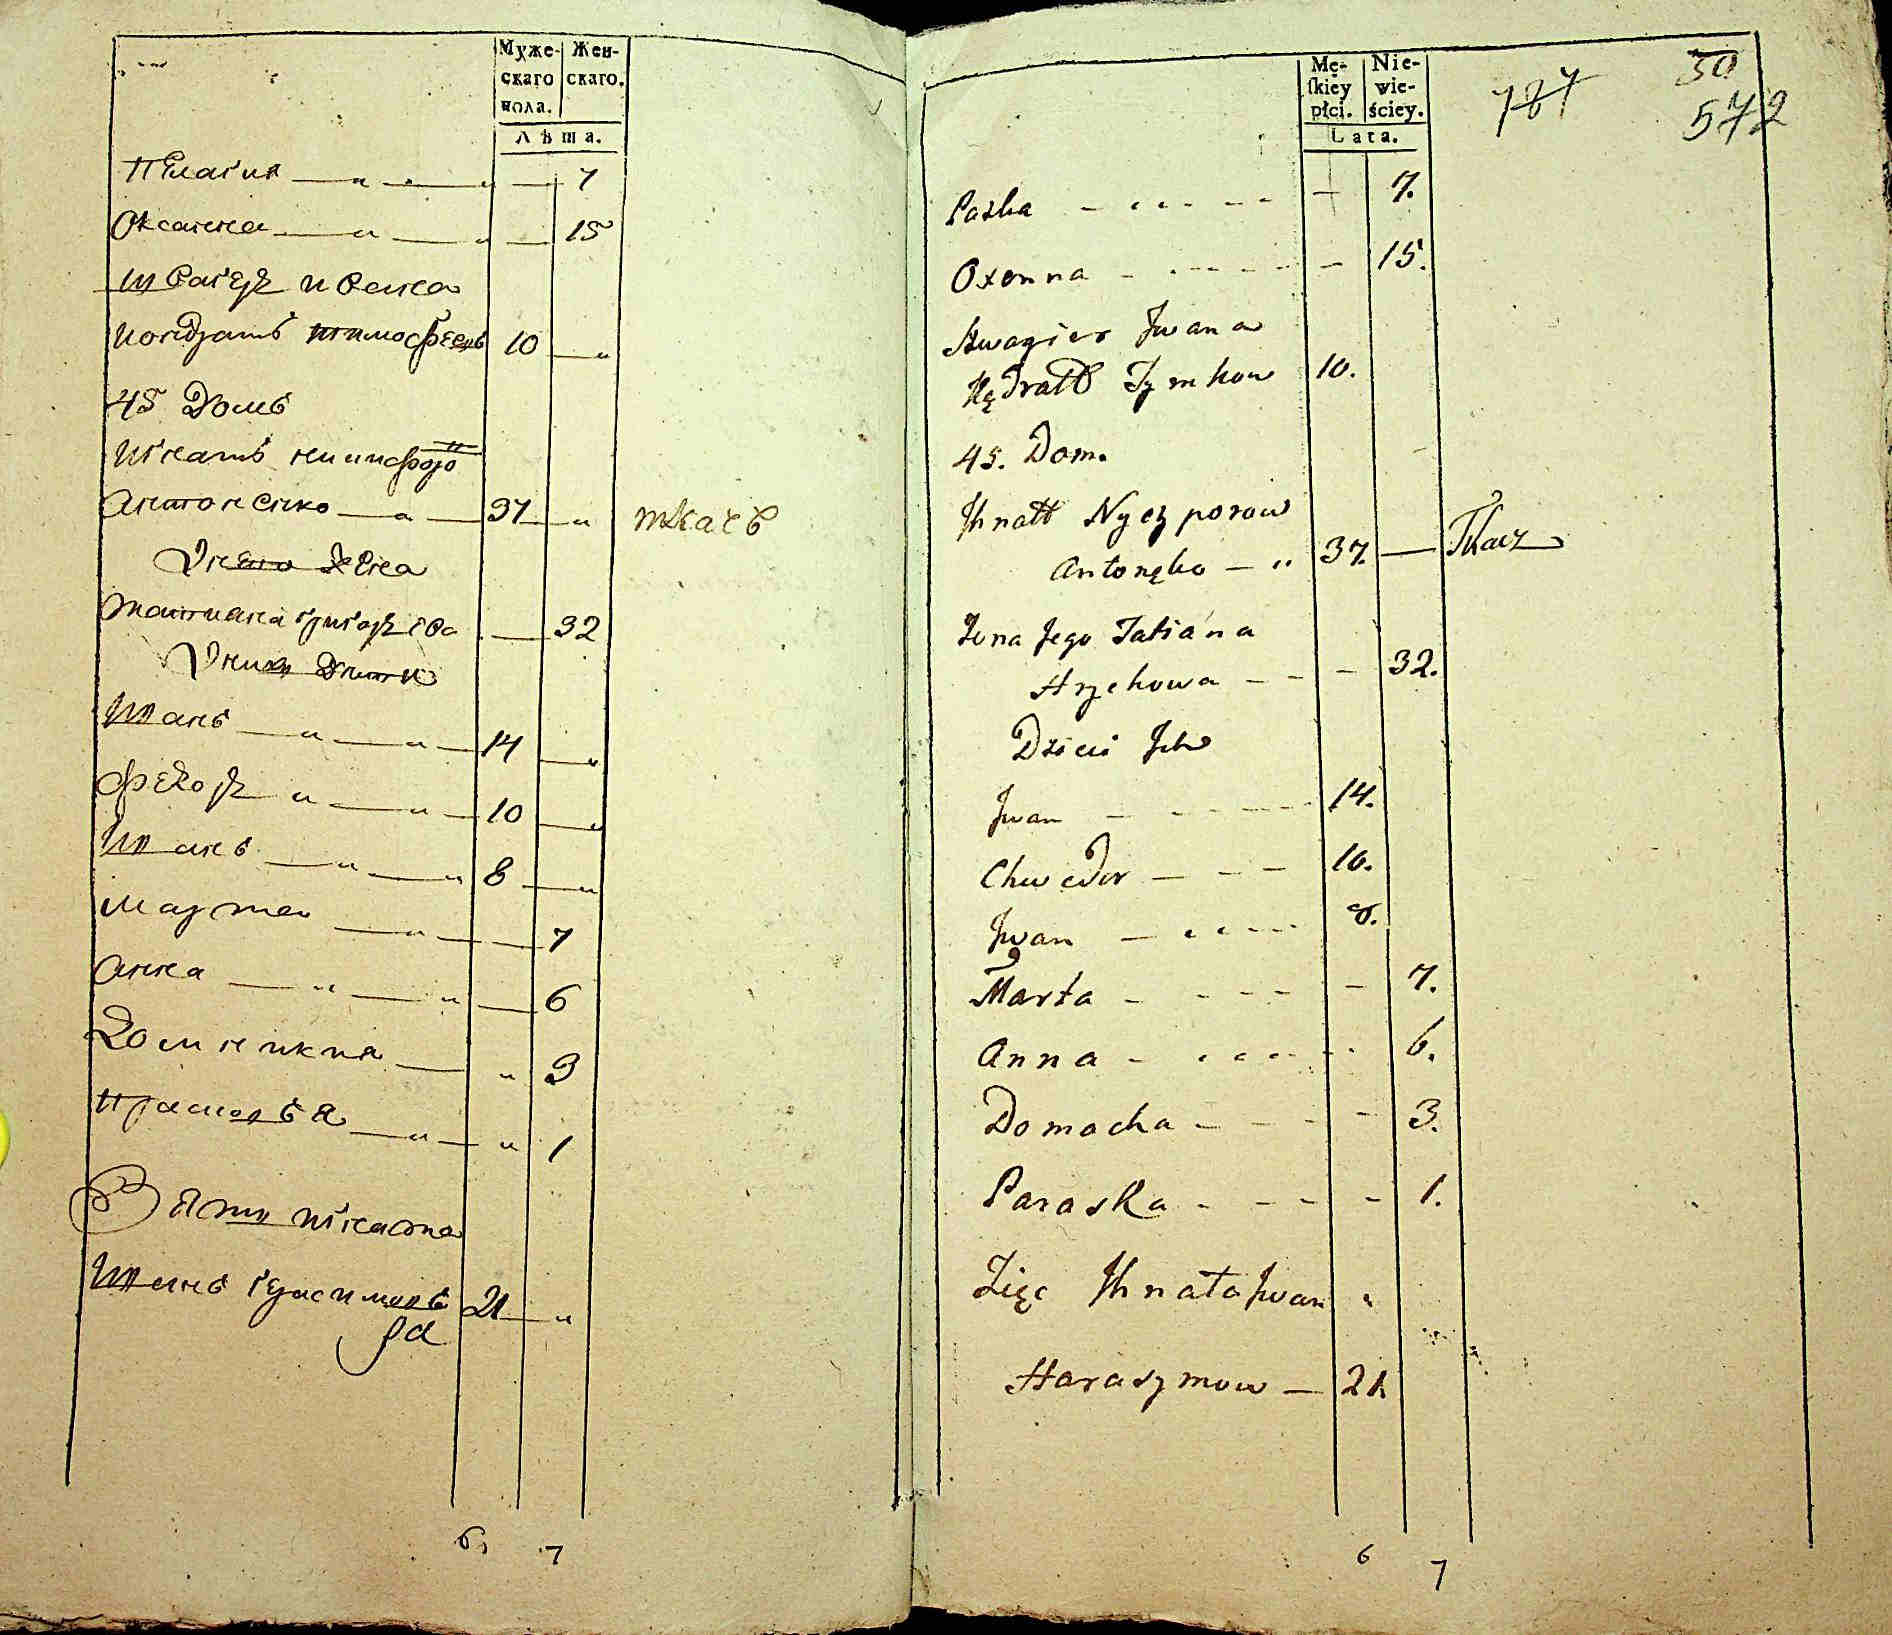 Муже-
скаго
пола.
Жен-
скаго.
Лѣта.
Пелагия — „ — „ — 7
Оксанна — „ — „ — 15
Швагер Ивана
Кондратъ Тимофеевъ 10 — „
45 Домъ
Игнатъ Ничипоро
Антоненко — „ — 37 — „ ткачъ
У него Жена
Татиана Григорева — 32
У них Дети
Иванъ — „ — „ — 14 — „
Федор — „ — „ — 10 — „
Иванъ — „ — „ 8 — „
Марта — „ — — 7
Анна — „ — „ — 6
Домникия — „ 3
Прасковья — „ — „ 1
Зять Игната
Иванъ Герасимовъ 21 — „
6, 7
Mę-
skiey
płci.
Nie-
wie-
ściey.
Lata.
787
50
572
Pazka - - - 7.
Oxenna - - - 15.
Szwagier Jwana
Kędratt Tymkow 10.
45. Dom.
Jhnatt Nyczporow
Antonęko — „ 37. — Tkacz
Żona Jego Tatiana
Hryhowa - - - 32.
Dzieci Jch
Jwan - - - 14.
Chwedor - - - 10.
Jwan - - - 8.
Marta - - - 7.
Anna - - - 6.
Domacha - - - 3.
Paraska - - - 1.
Zięc Jhnata Jwan „
Harasymow — 21.
6 7